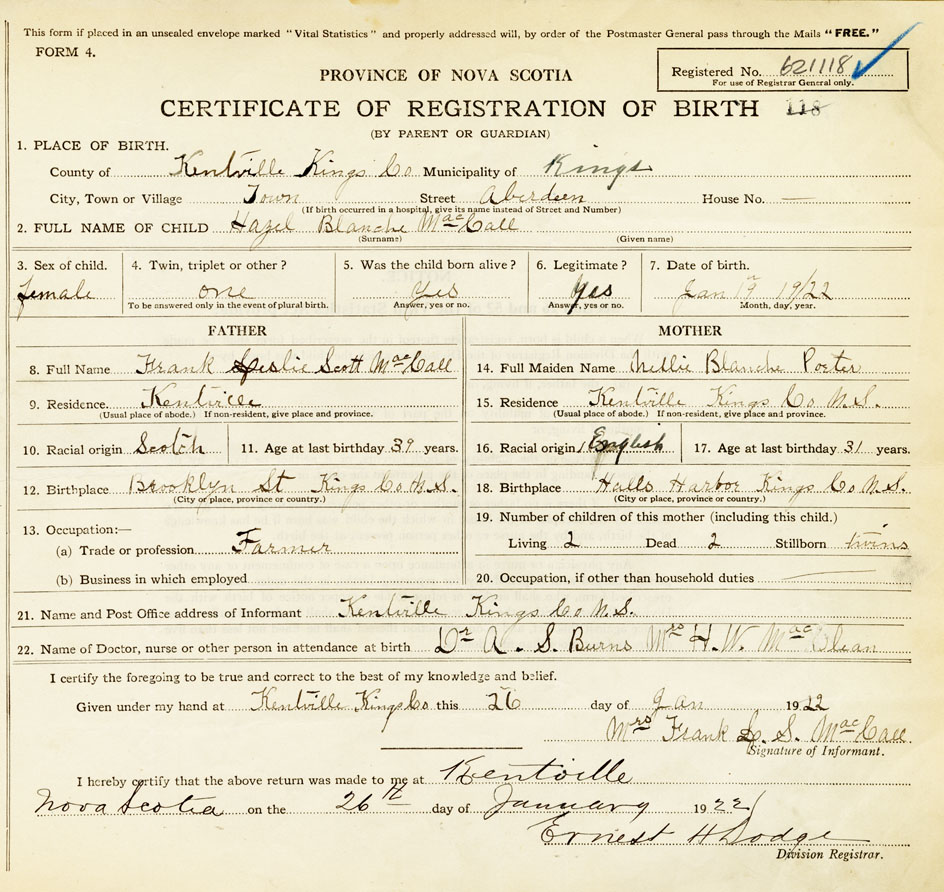 This form if placed in an unsealed envelope marked "Vital Statistics" and properly addressed will, by order of the Postmaster General pass through the Mails "FREE."
FORM 4.
Registered No. 621118
For use of Registrar General only.
PROVINCE OF NOVA SCOTIA
CERTIFICATE OF REGISTRATION OF BIRTH 118
(BY PARENT OR GUARDIAN)
1. PLACE OF BIRTH.
County of Kentville Kings Co Municipality of Kings
City, Town or Village Town Street Aberdeen House No. —
(If birth occurred in a hospital, give its name instead of Street and Number)
2. FULL NAME OF CHILD Hazel Blanche MacCall
(Surname) (Given name)
3. Sex of child. 4. Twin, triplet or other? 5. Was the child born alive? 6. Legitimate? 7. Date of birth.
female one Yes Yes Jan 19 1922
To be answered only in the event of plural birth. Answer, yes or no. Answer, yes or no. Month, day, year.
FATHER MOTHER
8. Full Name Frank Leslie Scott MacCall 14. Full Maiden Name Nellie Blanche Porter
9. Residence. Kentville 15. Residence Kentville Kings Co N.S.
(Usual place of abode.) If non-resident, give place and province. (Usual place of abode.) If non-resident, give place and province.
10. Racial origin Scotch 11. Age at last birthday 39 years. 16. Racial origin English 17. Age at last birthday 31 years.
12. Birthplace Brooklyn St Kings Co N.S. 18. Birthplace Halls Harbor Kings Co N.S.
(City or place, province or country.) (City or place, province or country.)
13. Occupation:— 19. Number of children of this mother (including this child.)
(a) Trade or profession Farmer Living 2 Dead 2 Stillborn twins
(b) Business in which employed 20. Occupation, if other than household duties —
21. Name and Post Office address of Informant Kentville Kings Co N.S.
22. Name of Doctor, nurse or other person in attendance at birth Dr A. S. Burns Mrs H. W. Mac Clean
I certify the foregoing to be true and correct to the best of my knowledge and belief.
Given under my hand at Kentville Kings Co this 26 day of Jan 1922
Mrs Frank L. S. MacCall
Signature of Informant.
I hereby certify that the above return was made to me at Kentville
Nova Scotia on the 26th day of January 1922
Ernest H Dodge
Division Registrar.